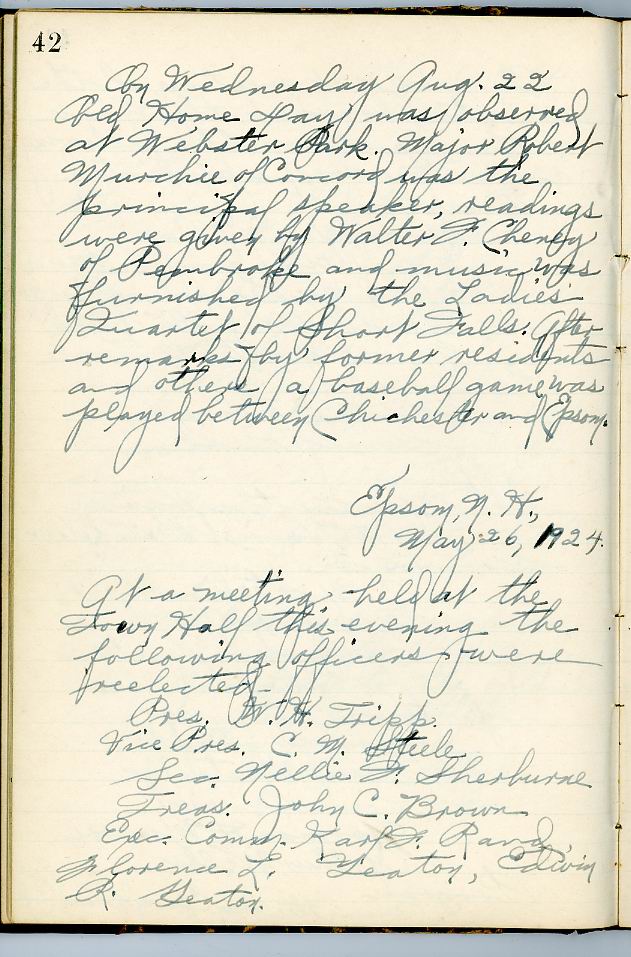 42
By Wednesday Aug. 22
Old Home Day was observed
at Webster Park. Major Robert
Murchie of Concord was the
principal speaker, readings
were given by Walter F. Cheney
of Pembroke and music was
furnished by the Ladies'
Quartet of Short Falls. After
remarks by former residents
and others a baseball game was
played between Chichester and Epsom.
Epsom, N. H.,
May 26, 1924.
At a meeting held at the
Town Hall this evening the
following officers were
reelected
Pres. W. H. Tripp
Vice Pres. C. M. Steele
Sec. Nellie Sherburne
Treas. John C. Brown
Exc. Comm. Karl Rand,
Florence L. Yeaton, Edwin
R. Yeaton.